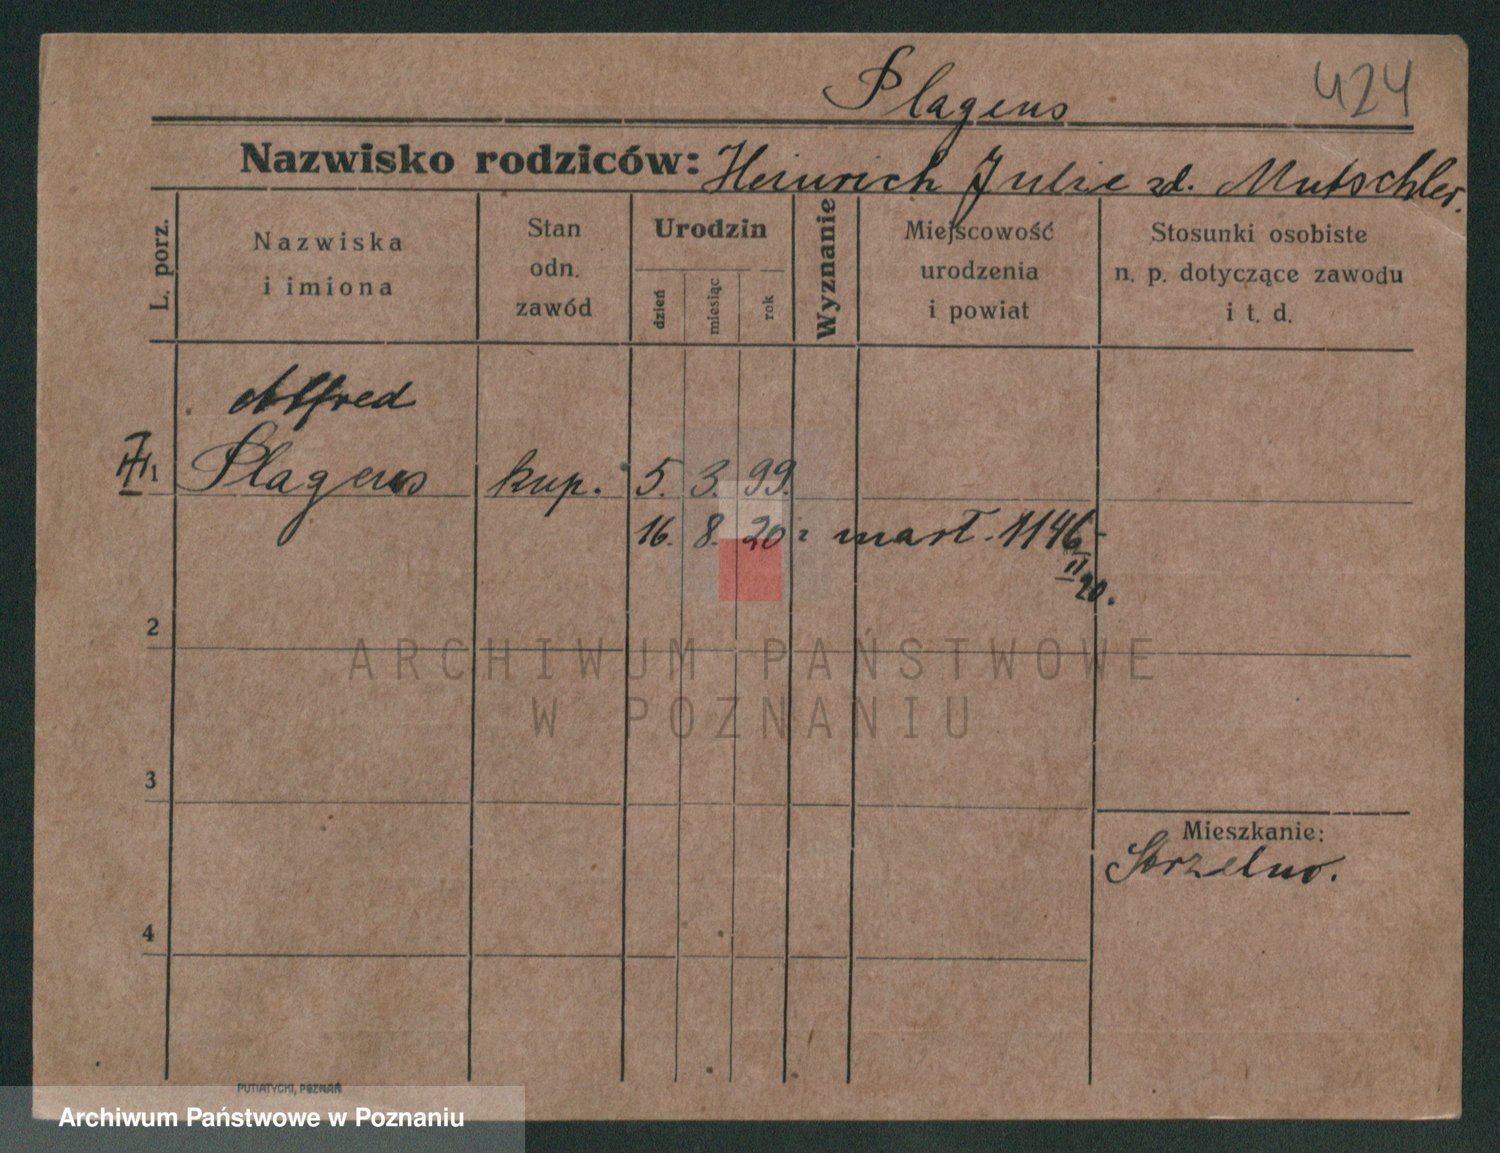 Plagens
424
Nazwisko rodziców: Heinrich Julie zd. Mutschler.
L. porz.
Nazwiska
i imiona
Stan
odn.
zawód
Urodzin
dzień
miesiąc
rok
Wyznanie
Miejscowość
urodzenia
i powiat
Stosunki osobiste
n. p. dotyczące zawodu
i t. d.
Alfred
1 Plagens kup. 5. 3. 99.
16. 8. 20 mart. 1146
II
20.
2
ARCHIWUM PAŃSTWOWE
W POZNANIU
3
Mieszkanie:
Strzelno.
4
PUTIATYCKI, POZNAŃ
Archiwum Państwowe w Poznaniu